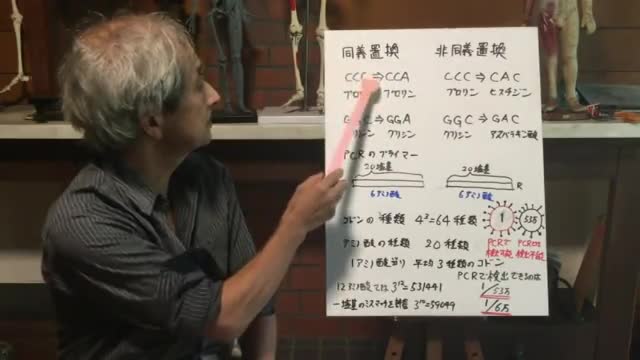 同義置換 非同義置換
CCC⇒CCA CCC⇒CAC
プロリン プロリン プロリン ヒスチジン
GGC⇒GGA GGC⇒GAC
グリシン グリシン グリシン アスパラギン酸
PCRのプライマー
20塩基 20塩基
R
6アミノ酸 6アミノ酸
コドンの種類 4³=64種類 1 53万
アミノ酸の種類 20種類 PCRで検出可能 PCRでは検出不能
1アミノ酸当り 平均3種類のコドン
PCRで検出できるのは
12アミノ酸では 3¹²=531441 1/53万
一塩基のミスマッチを許容 3¹⁰=59049 1/6万